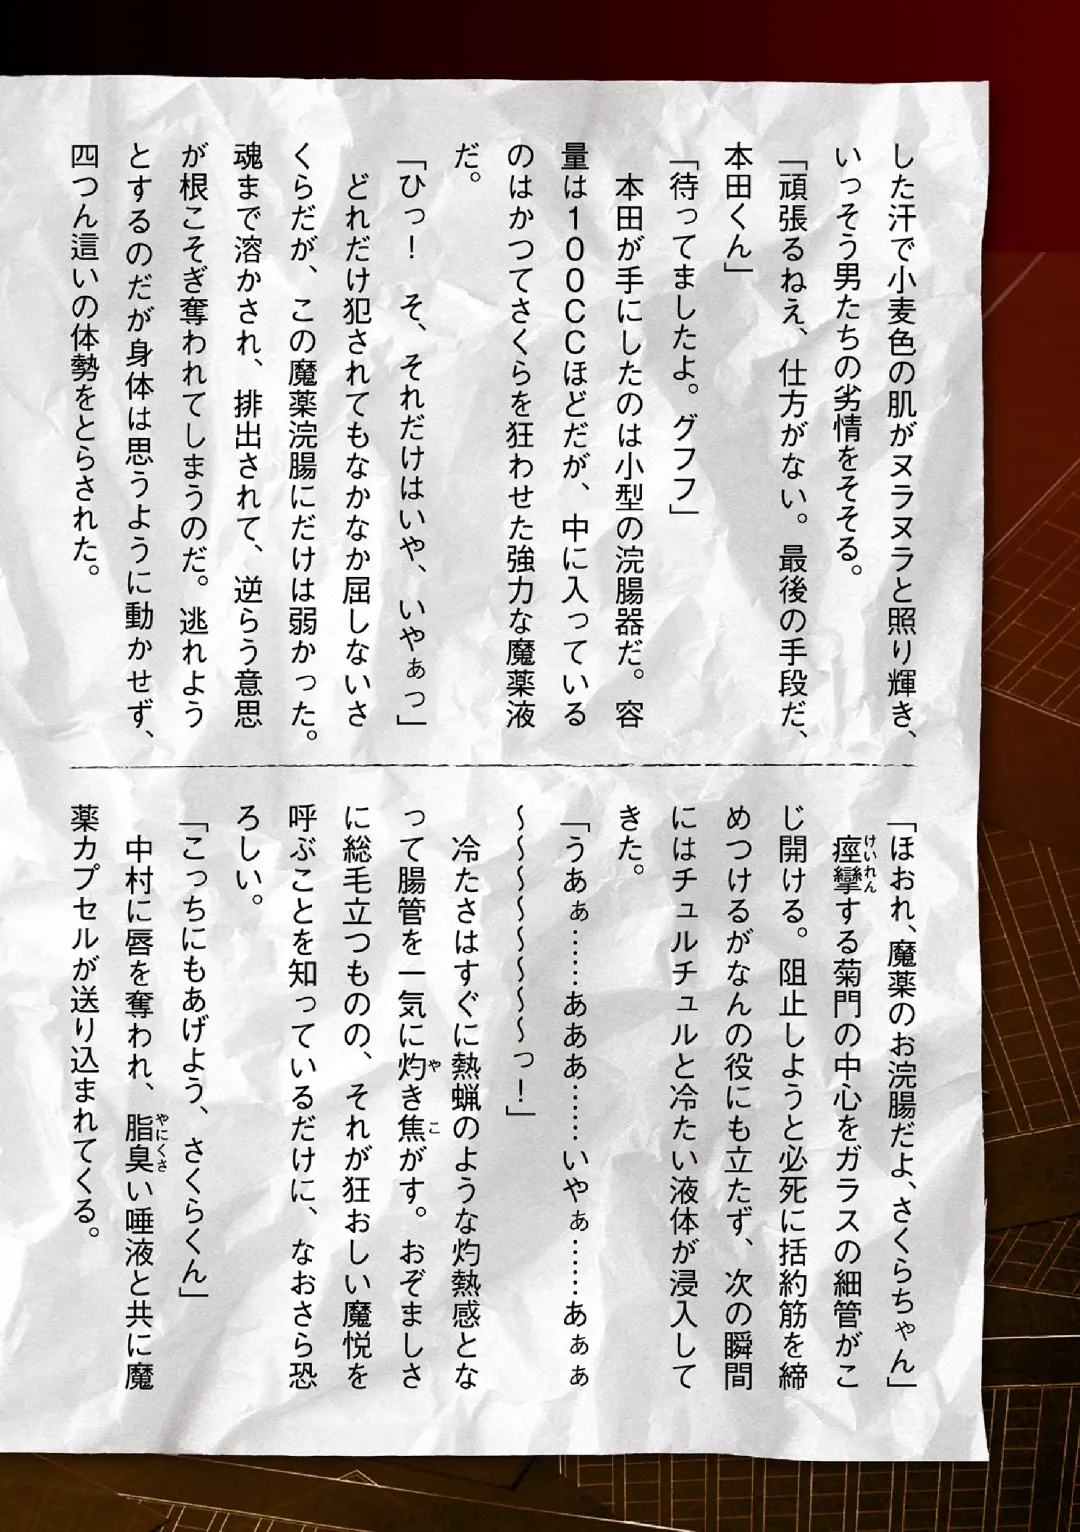 した汗で小麦色の肌がヌラヌラと照り輝き、
いっそう男たちの劣情をそそる。
「頑張るねえ、仕方がない。最後の手段だ、
本田くん」
「待ってましたよ。グフフ」
本田が手にしたのは小型の浣腸器だ。容
量は１００ＣＣほどだが、中に入っている
のはかつてさくらを狂わせた強力な魔薬液
だ。
「ひっ！　そ、それだけはいや、いやぁっ」
どれだけ犯されてもなかなか屈しないさ
くらだが、この魔薬浣腸にだけは弱かった。
魂まで溶かされ、排出されて、逆らう意思
が根こそぎ奪われてしまうのだ。逃れよう
とするのだが身体は思うように動かせず、
四つん這いの体勢をとらされた。
「ほおれ、魔薬のお浣腸だよ、さくらちゃん」
痙攣（けいれん）する菊門の中心をガラスの細管がこ
じ開ける。阻止しようと必死に括約筋を締
めつけるがなんの役にも立たず、次の瞬間
にはチュルチュルと冷たい液体が浸入して
きた。
「うあぁ……あああ……いやぁ……あぁぁ
～～～～～～～～っ！」
冷たさはすぐに熱蝋のような灼熱感とな
って腸管を一気に灼（や）き焦（こ）がす。おぞましさ
に総毛立つものの、それが狂おしい魔悦を
呼ぶことを知っているだけに、なおさら恐
ろしい。
「こっちにもあげよう、さくらくん」
中村に唇を奪われ、脂臭（やにくさ）い唾液と共に魔
薬カプセルが送り込まれてくる。